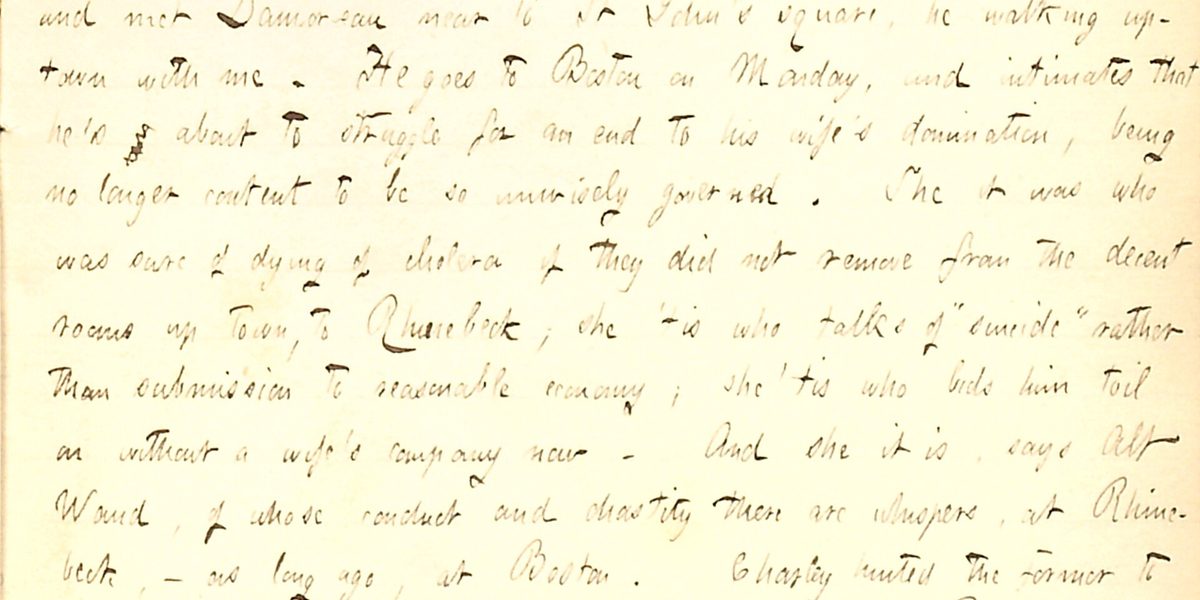 and met Damoreau near to St John's square, he walking up-
town with me. He goes to Boston on Monday, and intimates that
he's about to struggle for an end to his wife's domination, being
no longer content to be so unwisely governed. She it was who
was sure of dying of cholera if they did not remove from the decent
rooms up town, to Rhinebeck; she 'tis who talks of "suicide" rather
than submission to reasonable economy; she 'tis who bids him toil
on without a wife's company now - And she it is, says Alf
Waud, of whose conduct and chastity there are whispers, at Rhine-
beck, - as long ago, at Boston. Charley hinted the former to